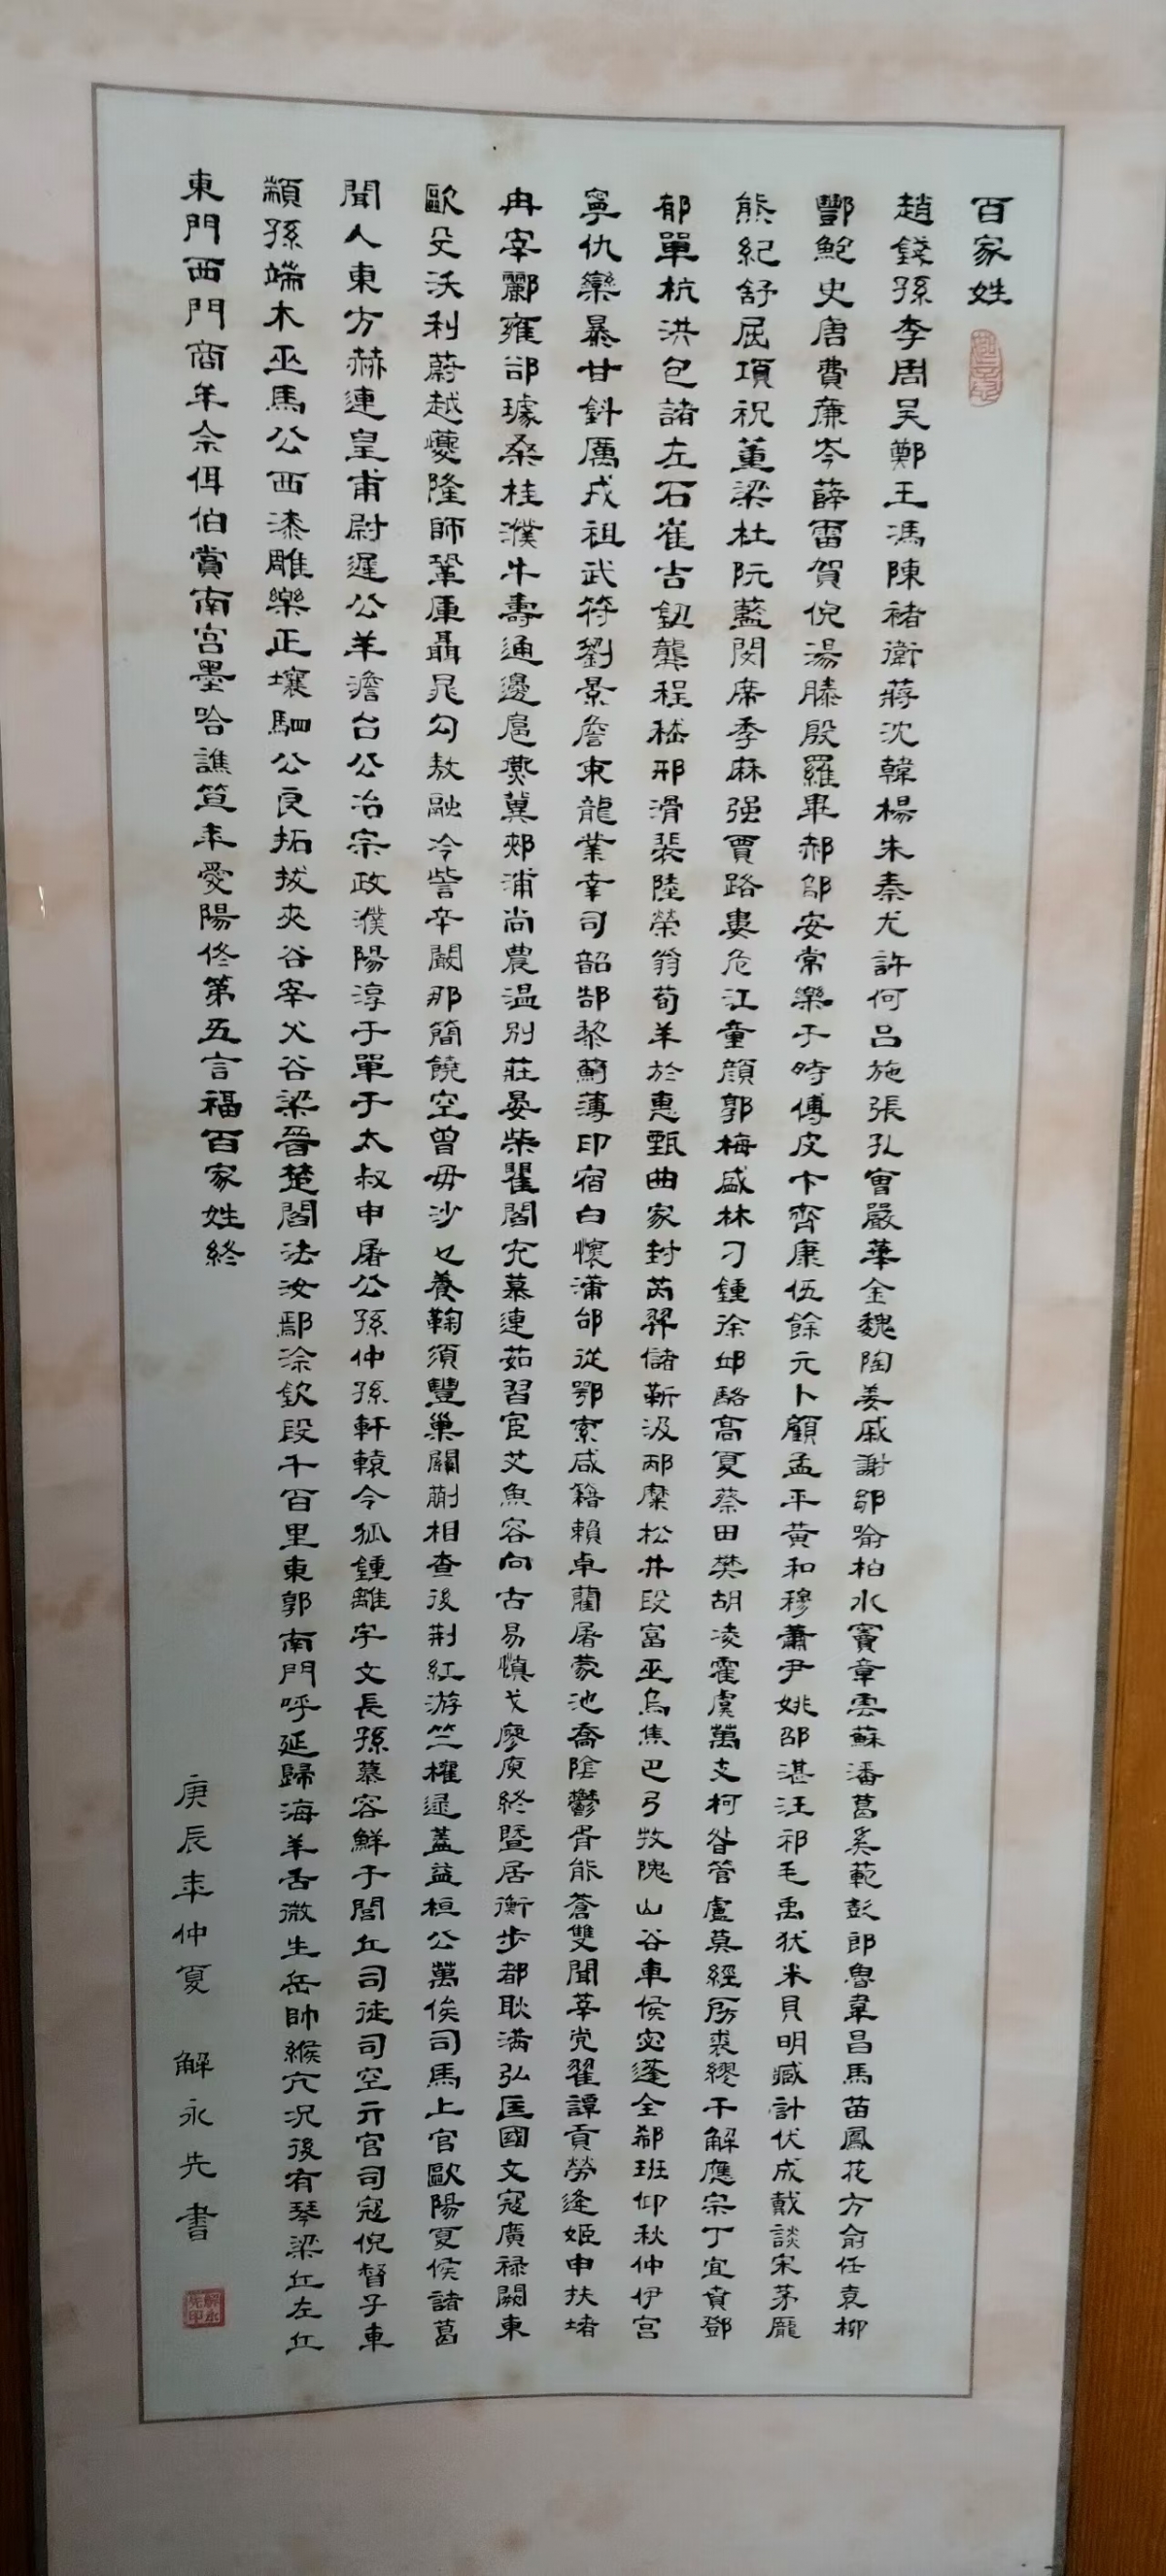 百家姓
趙錢孫李周吴鄭王馮陳褚衛蔣沈韓楊朱秦尤許何吕施張孔曹嚴華金魏陶姜戚謝鄒喻柏水竇章雲蘇潘葛奚範彭郎魯韋昌馬苗鳳花方俞任袁柳
酆鮑史唐費廉岑薛雷賀倪湯滕殷羅畢郝鄔安常樂于時傅皮卞齊康伍餘元卜顧孟平黄和穆蕭尹姚邵湛汪祁毛禹狄米貝明臧計伏成戴談宋茅龐
熊紀舒屈項祝董梁杜阮藍閔席季麻强賈路婁危江童顔郭梅盛林刁鍾徐邱駱高夏蔡田樊胡凌霍虞萬支柯昝管盧莫經房裘繆干解應宗丁宜賁鄧
郁單杭洪包諸左石崔吉鈕龔程嵇邢滑裴陸榮翁荀羊於惠甄曲家封芮羿儲靳汲邴糜松井段富巫烏焦巴弓牧隗山谷車侯宓蓬全郗班仰秋仲伊宫
寧仇欒暴甘鈄厲戎祖武符劉景詹束龍業幸司韶郜黎薊薄印宿白懷蒲邰從鄂索咸籍賴卓藺屠蒙池喬陰鬱胥能蒼雙聞莘党翟譚貢勞逄姬申扶堵
冉宰酈雍郤璩桑桂濮牛壽通邊扈燕冀郟浦尚農温别莊晏柴瞿閻充慕連茹習宦艾魚容向古易慎戈廖庾終暨居衡步都耿满弘匡國文寇廣禄闕東
歐殳沃利蔚越夔隆師鞏厙聶晁勾敖融冷訾辛闞那簡饒空曾毋沙乜養鞠須豐巢關蒯相查後荆紅游竺權逯蓋益桓公萬俟司馬上官歐陽夏侯諸葛
聞人東方赫連皇甫尉遲公羊澹台公冶宗政濮陽淳于單于太叔申屠公孫仲孫軒轅令狐鍾離宇文長孫慕容鮮于閭丘司徒司空亓官司寇倪督子車
顓孫端木巫馬公西漆雕樂正壤駟公良拓拔夾谷宰父谷梁晉楚閻法汝鄢涂欽段干百里東郭南門呼延歸海羊舌微生岳帥緱亢况後有琴梁丘左丘
東門西門商牟佘佴伯賞南宫墨哈譙笪年愛陽佟第五言福百家姓終
庚辰年仲夏 解永先書
解永先印